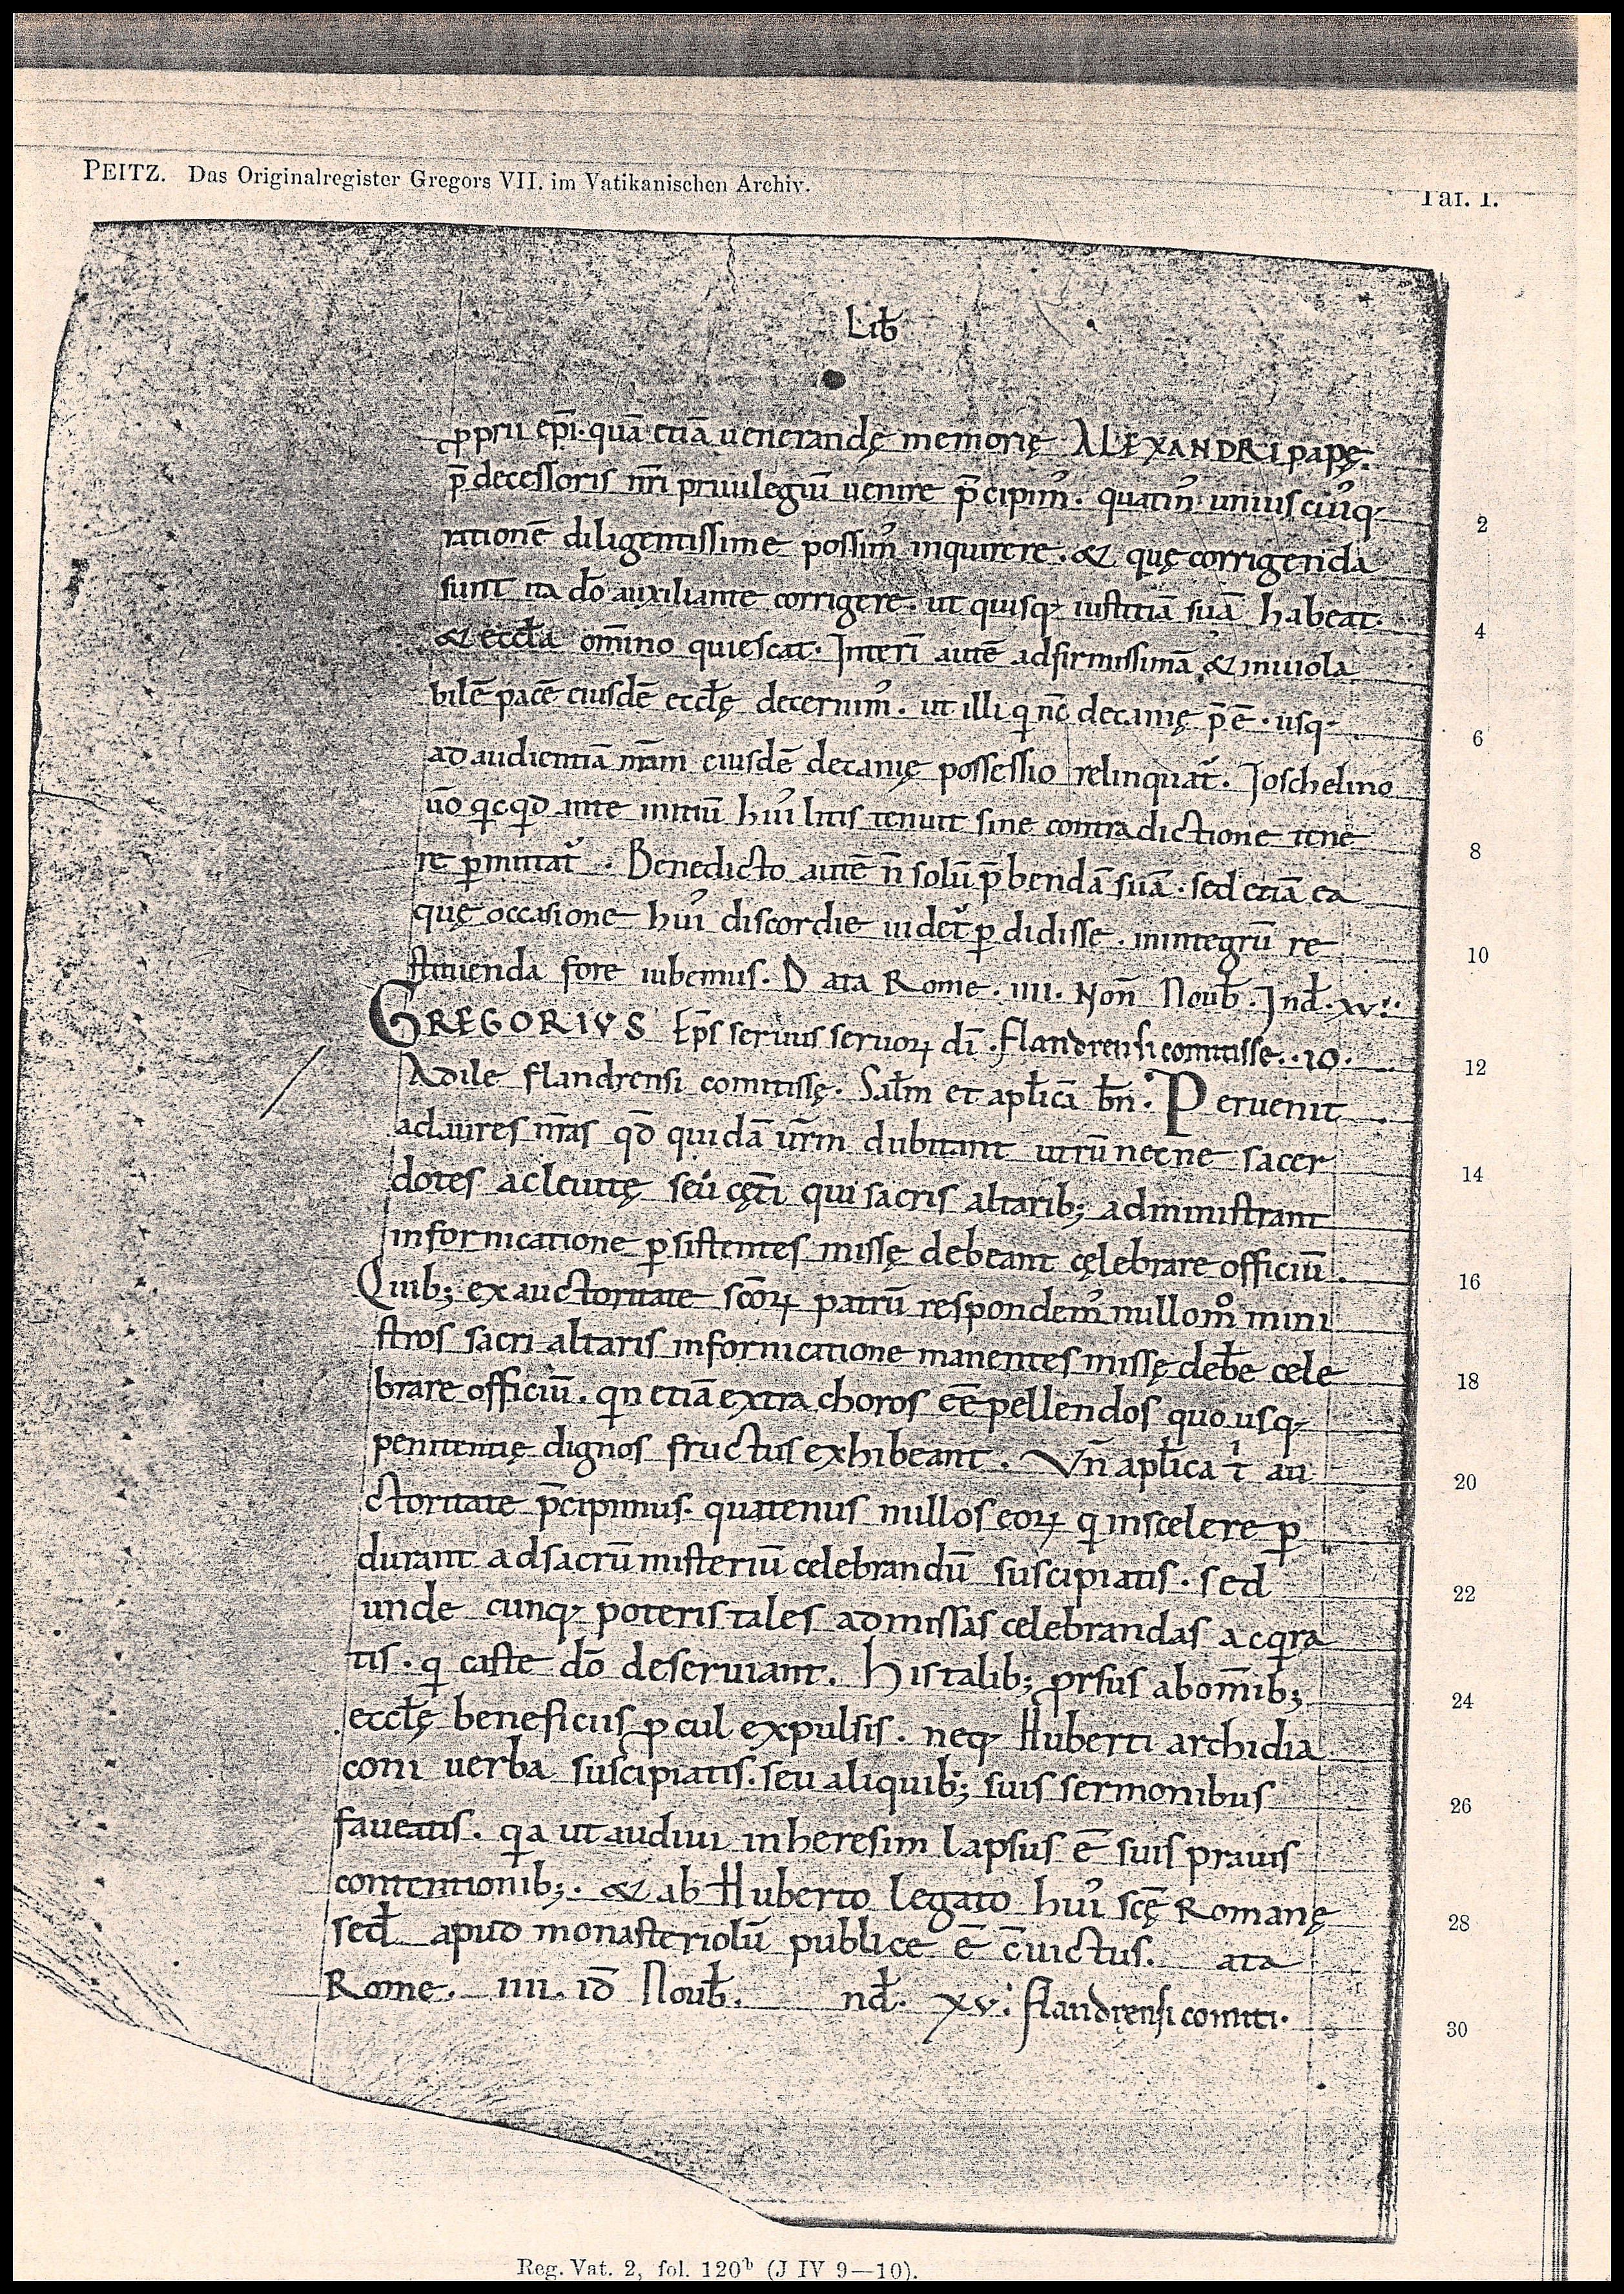 PEITZ. Das Originalregister Gregors VII. im Vatikanischen Archiv.
Taf. I.
Lib̄
ꝓprii ep̄i· quā etiā uenerandę memorię ALEXANDRI papę·
p̄decessoris nr̄i priuilegiū uenire p̄cipim᾽. quatin᾽ unius cui᾽q;
rationē diligentissime possim᾽ inquirere. & quę corrigenda
2
sunt ita dō auxiliante corrigere. ut quisq; iustitiā suā habeat·
& eccl̄a om̄ino quiescat· Interī autē ad firmissimā & inuiola
4
bilē pacē eiusdē eccl̄ę decernim᾽. ut illi q̇ nc̄ decanię p̄ ē· usq;
6
ad audientiā nr̄am eiusdē decanię possessio relinquat᾽. Joschelino
ūo qicqd̄ ante initiū hui᾽ litis tenuit sine contradictione tene
8
re ꝑmittat᾽. Benedicto autē n̄ solū p̄bendā suā· sed etiā ea
quę occasione hui᾽ discordie uidet᾽ ꝑdidisse. in integrū re
10
stituenda fore iubemus. D ata Rome. IIII. Non̄ Nouƀ. Ind̄. xv.
GREGORIVS Ep̄s seruus seruoꝝ dī. flandrensi comitisse. .10.
12
Adile flandrensi comitissę. Sal̄m et apl̄icā bn̄. Peruenit
ad aures nr̄as qd̄ quidā ur̄m dubitant utrū necne sacer
14
dotes ac leuitę seu cęt̄i qui sacris altarib; administrant
in fornicatione ꝑsistentes missę debeant cęlebrare officiū.
16
Quib; ex auctoritate sc̄oꝝ patrū respondem᾽ nullom̊ mini
stros sacri altaris in fornicatione manentes missę deb̄e cele
18
brare officiū. qn etiā extra choros eē pellendos quo usq;
penitentię dignos fructus exhibeant. Vn̄ apl̄ica t̄ i au
20
ctoritate p̄cipimus. quatenus nullos eoꝝ q̇ in scelere ꝑ
durant ad sacrū misteriū celebrandū suscipiatis. sed
22
unde cunq; poteris tales ad missas celebrandas acqira
tis. q̇ caste dō deseruiant. His talib; ꝓrsus ab om̄ib;
24
eccl̄ę beneficiis ꝓcul expulsis. neq; Huberti archidia
coni uerba suscipiatis. seu aliquib; suis sermonibus
26
faueatis. qa ut audiui in heresim lapsus ē suis prauis
contentionib;. & ab Huberto legato hui᾽ sc̄ę Romanę
28
sed̄ apud monasteriolū publice ē c̄uictus. ata
Rome. IIII. id̄ Nouƀ. nd̄. xv. flandrensi comiti.
30
Reg. Vat. 2, fol. 120ᵇ (J IV 9—10).